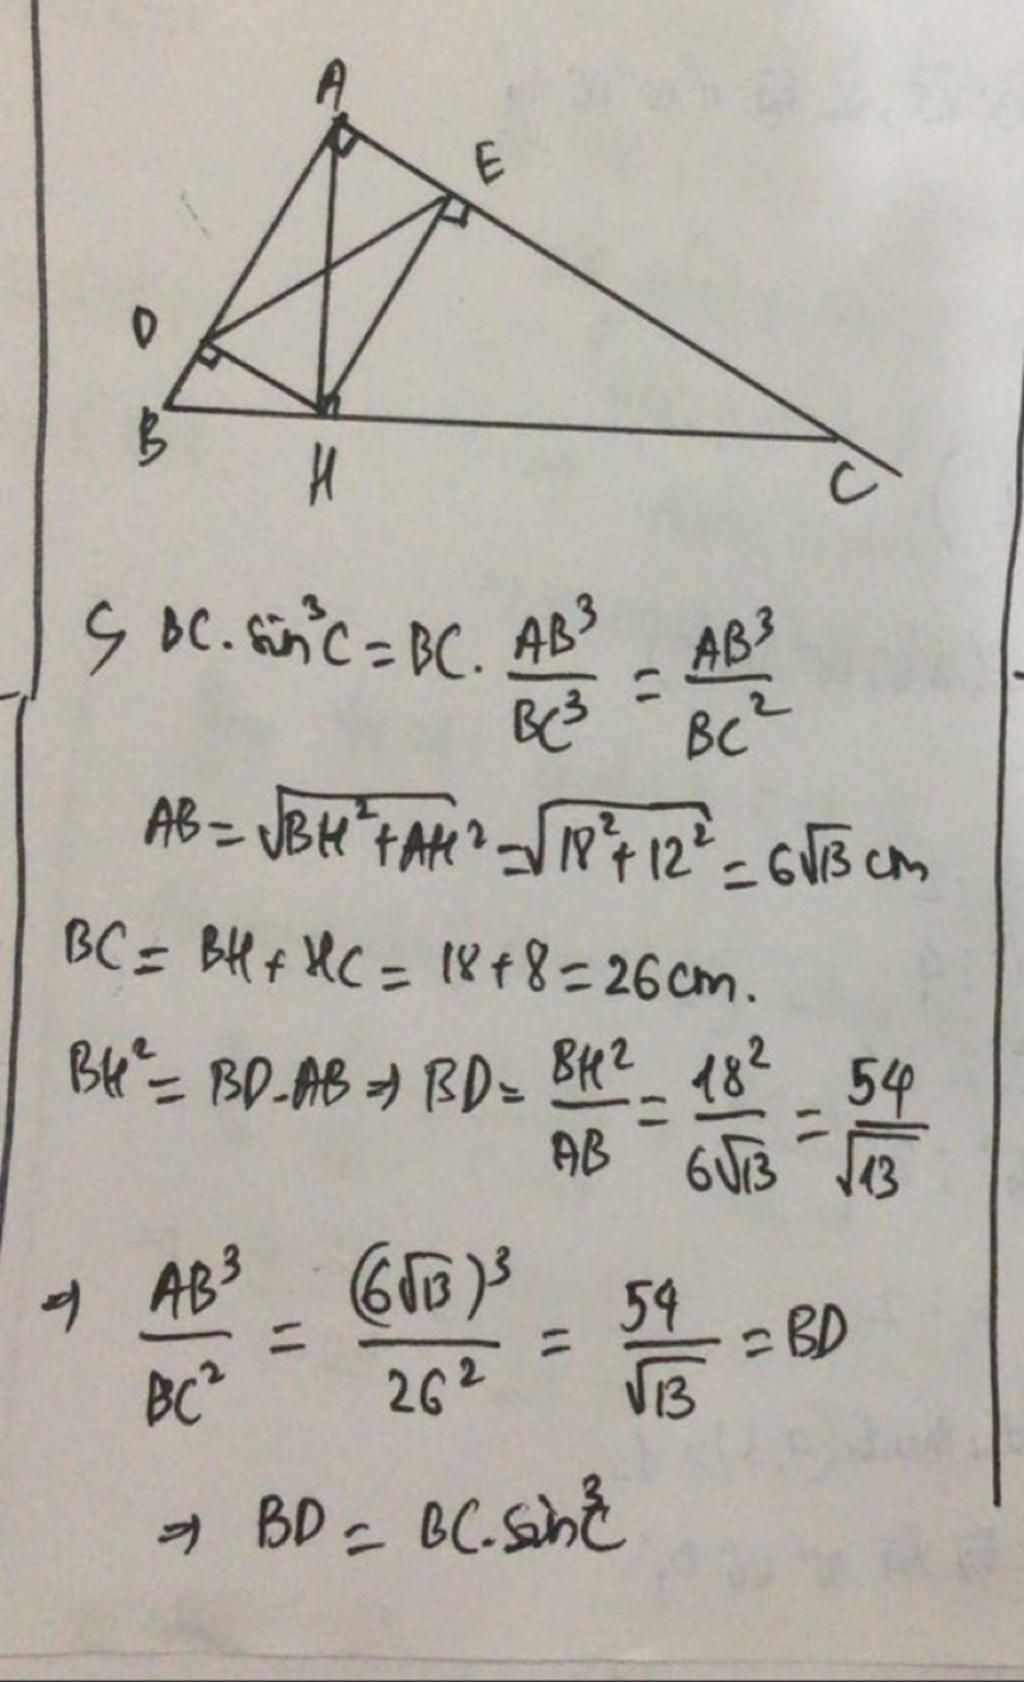 A
E
D
B
H
C
c, BC . sin³C = BC . AB³/BC³ = AB³/BC²
AB = √(BH² + AH²) = √(18² + 12²) = 6√13 cm
BC = BH + HC = 18 + 8 = 26 cm.
BH² = BD . AB ⇒ BD = BH²/AB = 18²/6√13 = 54/√13
⇒ AB³/BC² = (6√13)³/26² = 54/√13 = BD
⇒ BD = BC . sin³C